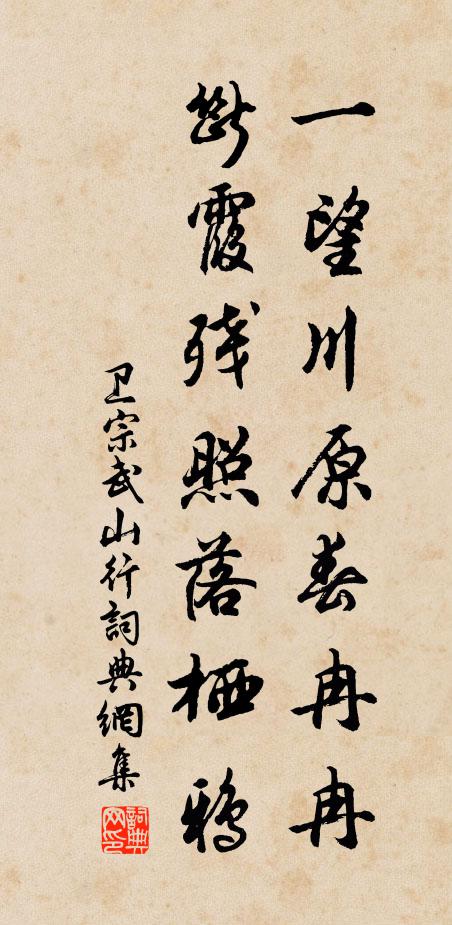 一望川原春冉冉
断霞残照落栖鸦
卫宗武山行詞典網集
詞典网印